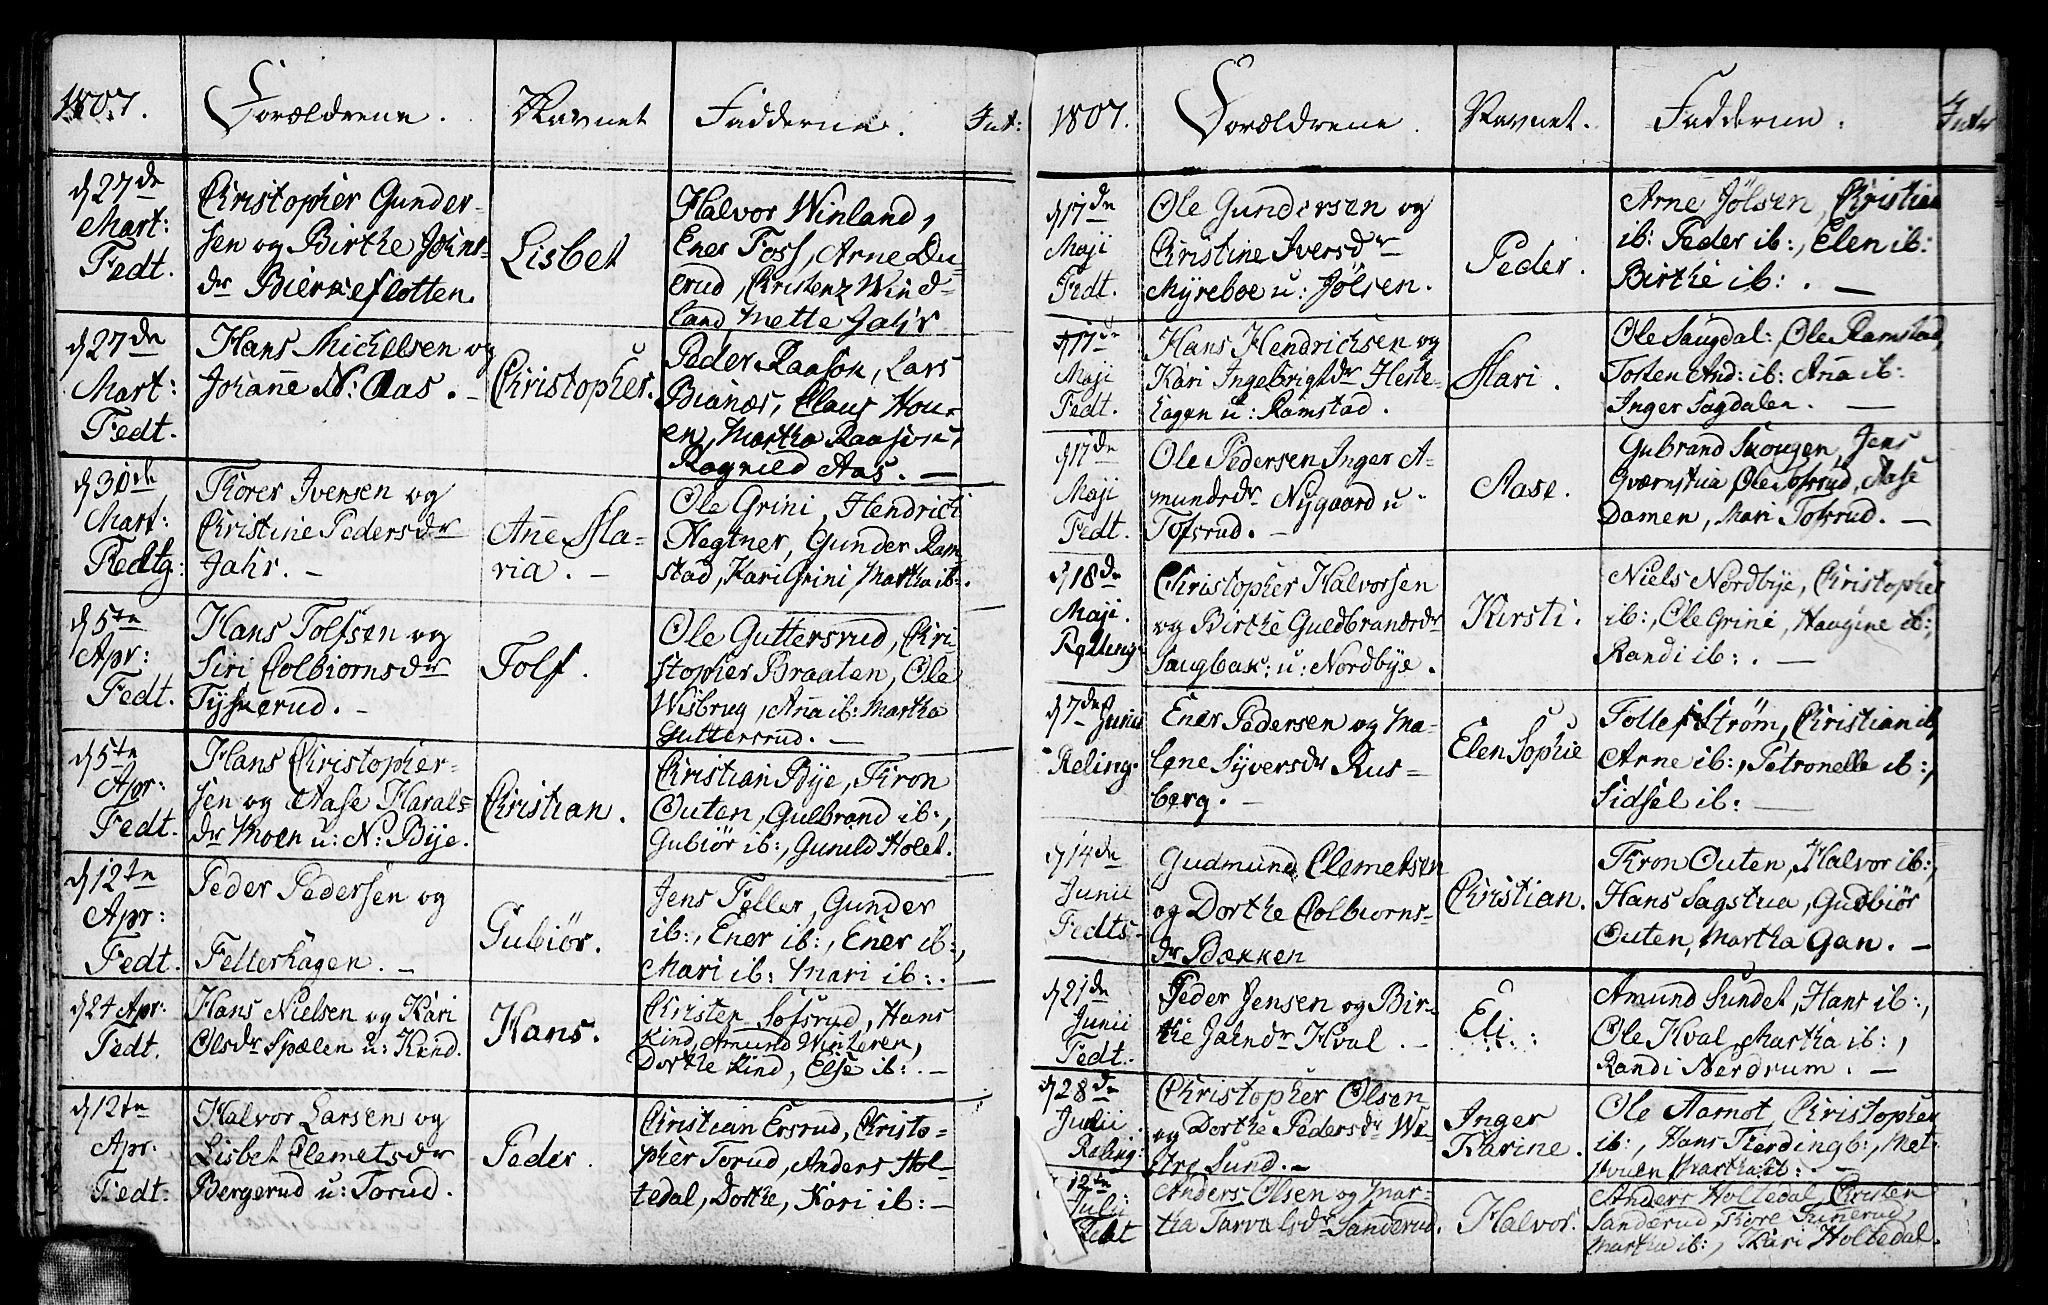 1807.
Forældrene.
Navnet
Fadderne.
Int:
d 27de
Mart:
Fedt.
Christopher Gunder-
sen og Birthe Johns-
dr Bierkeflotten.
Lisbet
Halvor Winland,
Ener Foss, Arne Du-
erud, Christenz Wind-
land, Mette Jahr
d 27de
Mart:
Fedt.
Hans Michelsen og
Johanne N: Aas. -
Christopher.
Peder Raason, Lars
Bianæs, Claus Hou-
en, Martha Raason,
Ragnild Aas. -
d 30de
Mart:
Fedtg:
Thorer Ivensen og
Christine Pedersdr
Jahr. -
Anne Ma-
ria. -
Ole Grini, Hendrich
Negtner, Gunder Ram
stad, Kari Grini, Martha ib:.
d 5te
Apr:
Fedt.
Hans Tolfsen og
Siri Colbiornsdr
Tysnerud. -
Tolf.
Ole Guttersrud, Chri
stopher Braaten, Ole
Wisbrug, Anna ib: Martha
Guttersrud. -
d 5te
Apr:
Fedt.
Hans Christopher-
sen og Aase Harals-
dr Moen u: N: Bye.
Christian.
Christian Bye, Thron
Outen, Gulbrand ib:,
Gubiør ib:, Gunild Holet.
d 12te
Apr:
Fedt.
Peder Pedersen og
Fellerhagen. -
Gubiør.
Jens Feller, Gunder
ib:, Ener ib:, Ener ib:,
Mari ib: Mari ib:.
d 24 Apr:
Fedt.
Hans Nielsen og Kari
Olsdr Spælen u: Kind.
Hans.
Christen Sofsrud, Hans
Kind, Amund Winteren,
Dorthe Kind, Else ib:. -
d 12te
Apr:
Fedt.
Halvor Larsen og
Lisbet Clemetsdr
Bergerud u: Torud.
Peder.
Christian Ersrud, Christo-
pher Torud, Anders Hol-
tedal, Dorthe, Kari ib: -
1807.
Forældrene.
Navnet.
Fadderne.
d 17de
Maji
Fedt.
Ole Gundersen og
Christine Iversdr
Myreboe u: Jølsen.
Peder.
Arne Jølsen, Christian
ib: Peder ib:, Elen ib:
Birthe ib:. -
d 17de
Maji
Fedt.
Hans Hendrichsen og
Kari Ingebrigtdr Heste-
hagen u: Ramstad.
Mari.
Ole Saugdal:, Ole Ramstad,
Tosten And: ib: Anna ib:
Inger Sagdalen. -
d 17de
Maji
Fedt.
Ole Pedersen Inger A-
mundsdr Nygaard u:
Tofsrud. -
Aase.
Gubrand Skougen, Jens
Qværnstua, Ole Tofsrud, Aase
Damen, Mari Tofsrud. -
d 18de
Maji.
Christopher Halvorsen
og Birthe Guldbrandsdr
Saugbak: u: Nordbye.
Kirsti.
Niels Nordbye, Christopher
ib:, Ole Grini, Haagine ib:,
Randi ib:. -
d 7de Junii
Reling:
Ener Pedersen og Ma-
lene Syversdr Rus-
berg. -
Elen Sophie
Tollef Strøm, Christian ib,
Arne ib:, Petronelle ib:,
Sidsel ib: -
d 14de
Junii
Fedts-
Gudmund Clemetsen
og Dorthe Colbiorns-
dr Bækken
Christian.
Thron Outen, Halvor ib:,
Hans Sagstua, Gudbiør
Outen, Martha Gan. -
d 21de
Junii
Fedt.
Peder Jensen og Bir-
the Jahndr Hval. -
Eli
Amund Sundet, Hans ib:,
Ole Hval, Martha ib:,
Randi Nerdrum. -
d 28de
Junii
Reling:
Christopher Olsen
og Dorthe Pedersdr We-
stre Sund. -
Inger
Karine.
Ole Aamot, Christopher
ib:, Hans Fierdingb:, Met-
Martha ib:. -
12te
Julij
Fedt
Anders Olsen og Mar-
tha Tarvalsdr Sanderud.
Halvor.
Anders Holtedal, Christen
Sanderud, Thore Sunerud,
Martha ib:, Kari Holtedal.